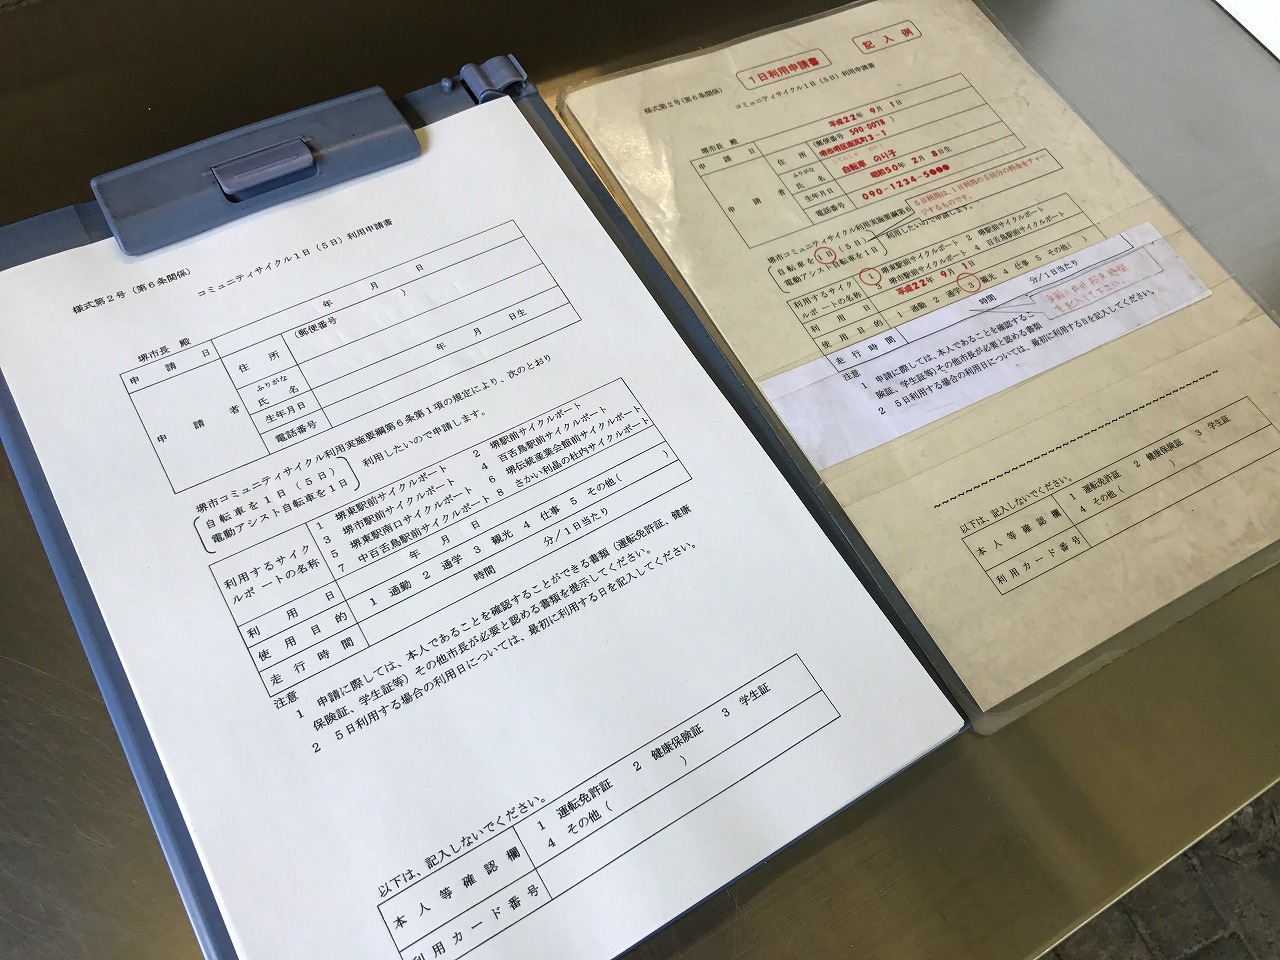 様式第2号(第6条関係)
コミュニティサイクル1日(5日)利用申請書
堺市長 殿
申請日 年 月 日
申請者 住所 (郵便番号 )
ふりがな
氏名
生年月日 年 月 日生
電話番号
堺市コミュニティサイクル利用実施要綱第6条第1項の規定により、次のとおり
自転車を1日(5日)
電動アシスト自転車を1日
利用したいので申請します。
利用するサイクルポートの名称
1 堺東駅前サイクルポート 2 堺駅前サイクルポート
3 堺市駅前サイクルポート 4 百舌鳥駅前サイクルポート
5 堺東駅南口サイクルポート 6 堺伝統産業会館前サイクルポート
7 中百舌鳥駅前サイクルポート 8 さかい利晶の杜内サイクルポート
利用日 年 月 日
使用目的 1 通勤 2 通学 3 観光 4 仕事 5 その他( )
走行時間 時間 分/1日当たり
注意
1 申請に際しては、本人であることを確認することができる書類(運転免許証、健康
保険証、学生証等)その他市長が必要と認める書類を提示してください。
2 5日利用する場合の利用日については、最初に利用する日を記入してください。
以下は、記入しないでください。
本人等確認欄 1 運転免許証 2 健康保険証 3 学生証
4 その他( )
利用カード番号
1日利用申請書
記入例
様式第2号(第6条関係)
コミュニティサイクル1日(5日)利用申請書
堺市長 殿
申請日 平成22年 9月 1日
申請者 住所 (郵便番号 590-0078 )
堺市堺区南瓦町3-1
ふりがな
氏名 自転車 のり子
生年月日 昭和50年 2月 8日生
電話番号 090-1234-5●●●
5日利用は、1日利用の5回分の料金をチャー
ジするものです。
堺市コミュニティサイクル利用実施要綱第6
自転車を1日(5日)
電動アシスト自転車を1日
利用したいので申請します。
利用するサイクルポートの名称
1 堺東駅前サイクルポート 2 堺駅前サイクルポート
3 堺市駅前サイクルポート 4 百舌鳥駅前サイクルポート
利用日 平成22年 9月 1日
使用目的 1 通勤 2 通学 3 観光 4 仕事 5 その他( )
走行時間 時間 分/1日当たり
注意
1 申請に際しては、本人であることを確認するこ
険証、学生証等)その他市長が必要と認める書類
2 5日利用する場合の利用日については、最初に利用する日を記入してください。
以下は、記入しないでください。
本人等確認欄 1 運転免許証 2 健康保険証 3 学生証
4 その他( )
利用カード番号